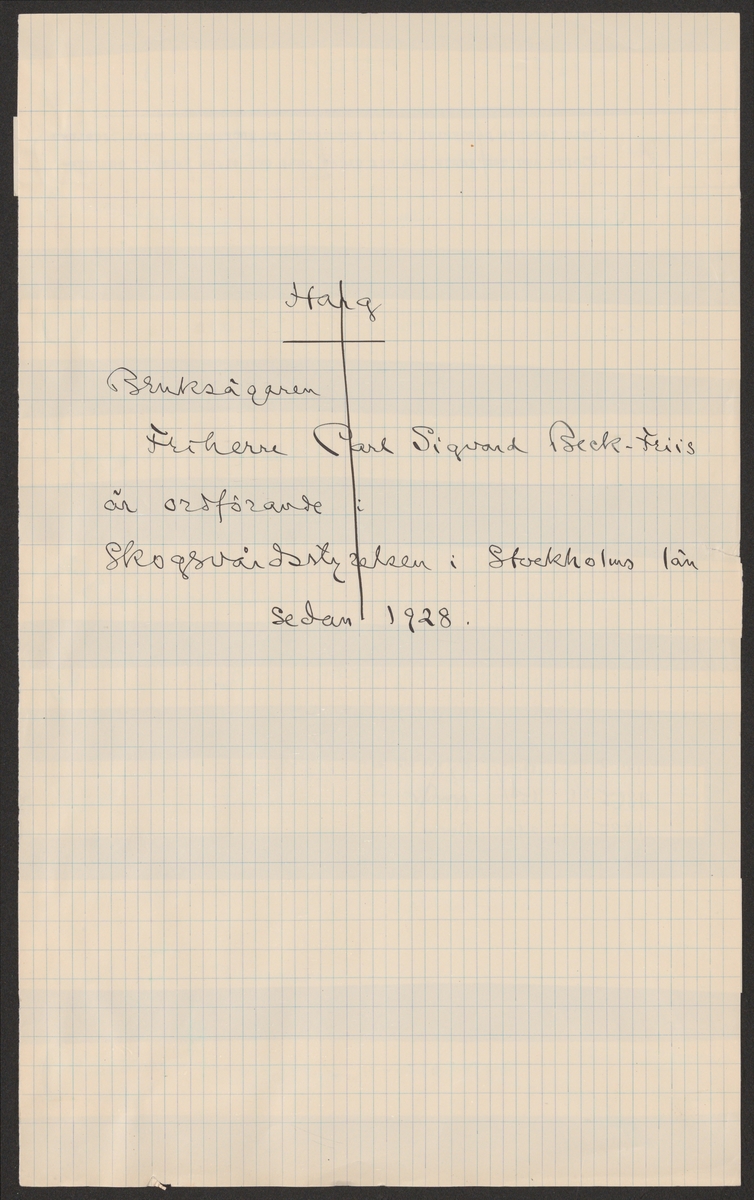 Harg
Bruksägaren
Friherre Carl Sigvard Beck-Friis
är ordförande i
Skogsvårdsstyrelsen i Stockholms län
sedan 1928.